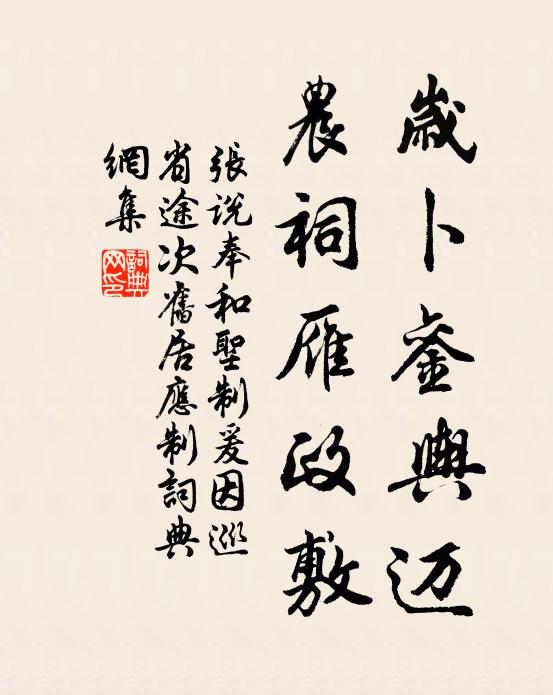 歲卜銮輿迈
農祠雁政敷
張説奉和聖制爰因巡
省途次舊居應制詞典
網集
詞典
网印